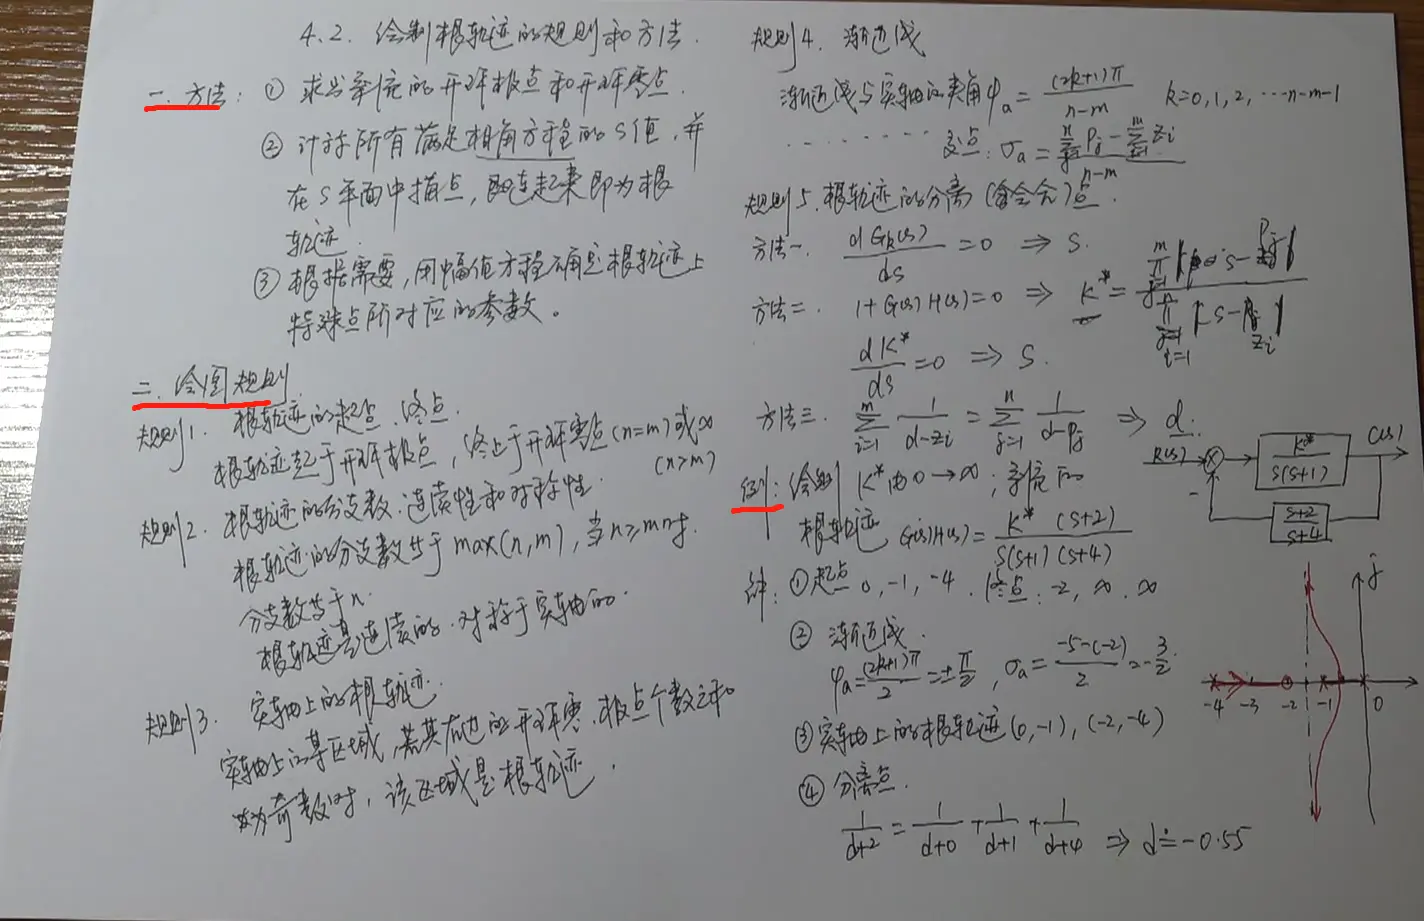 4.2. 绘制根轨迹的规则和方法.
一. 方法: ① 求出系统的开环极点和开环零点.
② 计算所有满足相角方程的S值, 并
在S平面中描点, 连起来即为根
轨迹.
③ 根据需要, 用幅值方程确定根轨迹上
特殊点所对应的参数。
二. 绘图规则
规则1. 根轨迹的起点、终点.
根轨迹起于开环极点, 终止于开环零点 (n=m) 或∞
(n>m)
规则2. 根轨迹的分支数. 连续性和对称性.
根轨迹的分支数等于 max(n,m), 当 n≥m时.
分支数等于n.
根轨迹是连续的. 对称于实轴的.
规则3. 实轴上的根轨迹.
实轴上的某区域, 若其右边的开环零、极点个数之和
为奇数时, 该区域是根轨迹.
规则4. 渐近线
渐近线与实轴的夹角 φa = (2k+1)π / (n-m) k=0,1,2,…n-m-1
…… 交点: σa = (Σ_{j=1}^{n} Pj - Σ_{i=1}^{m} Zi) / (n-m)
规则5. 根轨迹的分离(会合)点.
方法一. dGk(s)/ds = 0 ⇒ S.
方法二. 1+G(s)H(s)=0 ⇒ K* = |s-Pj| / |s-Zi|
dK*/ds = 0 ⇒ S.
方法三. Σ_{i=1}^{m} 1/(d-Zi) = Σ_{j=1}^{n} 1/(d-Pj) ⇒ d.
R(s) - K*/(S(S+1)) C(s)
(S+2)/(S+4)
例: 绘制 K*由0→∞, 系统的
根轨迹 G(s)H(s) = K*(S+2) / (S(S+1)(S+4))
解: ① 起点 0, -1, -4. 终点: -2, ∞, ∞
② 渐近线.
φa = (2k+1)π/2 = ±π/2, σa = (-5-(-2))/2 = -3/2.
③ 实轴上的根轨迹 (0,-1), (-2,-4)
④ 分离点.
1/(d+2) = 1/(d+0) + 1/(d+1) + 1/(d+4) ⇒ d≐-0.55
j
-4 -3 -2 -1 0